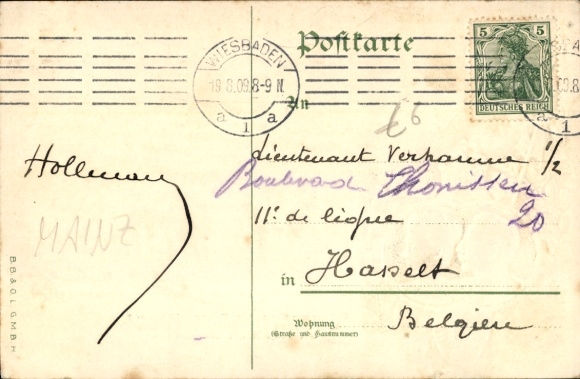 Postkarte
5 5
DEUTSCHES REICH
WIESBADEN
19.8.09.8-9 N.
a 1 a
09.8
a
1
An
€6
Lieutenant Verhamme 1/2
Boulevard Thonissen
20
11e de ligne
in Hasselt
Belgien
Wohnung
(Straße und Hausnummer)
Holleman
MAINZ
B B & O L G M B H